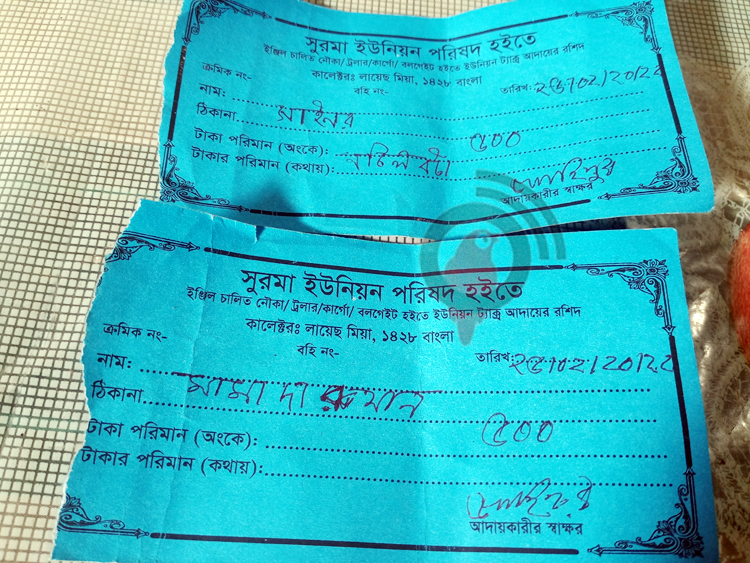 সুরমা ইউনিয়ন পরিষদ হইতে
ইঞ্জিল চালিত নৌকা/ ট্রলার/কার্গো/ বলগেইট হইতে ইউনিয়ন ট্যাক্স আদায়ের রশিদ
কালেক্টরঃ লায়েছ মিয়া, ১৪২৮ বাংলা
ক্রমিক নং-
বহি নং-
তারিখ:
নাম:
ঠিকানা
সাইনর
টাকা পরিমান (অংকে): ৫০০
টাকার পরিমান (কথায়):
আদায়কারীর স্বাক্ষর
সুরমা ইউনিয়ন পরিষদ হইতে
ইঞ্জিল চালিত নৌকা/ ট্রলার/কার্গো/ বলগেইট হইতে ইউনিয়ন ট্যাক্স আদায়ের রশিদ
কালেক্টরঃ লায়েছ মিয়া, ১৪২৮ বাংলা
ক্রমিক নং-
বহি নং-
তারিখ:
নাম:
ঠিকানা
টাকা পরিমান (অংকে): ৫০০
টাকার পরিমান (কথায়):
আদায়কারীর স্বাক্ষর